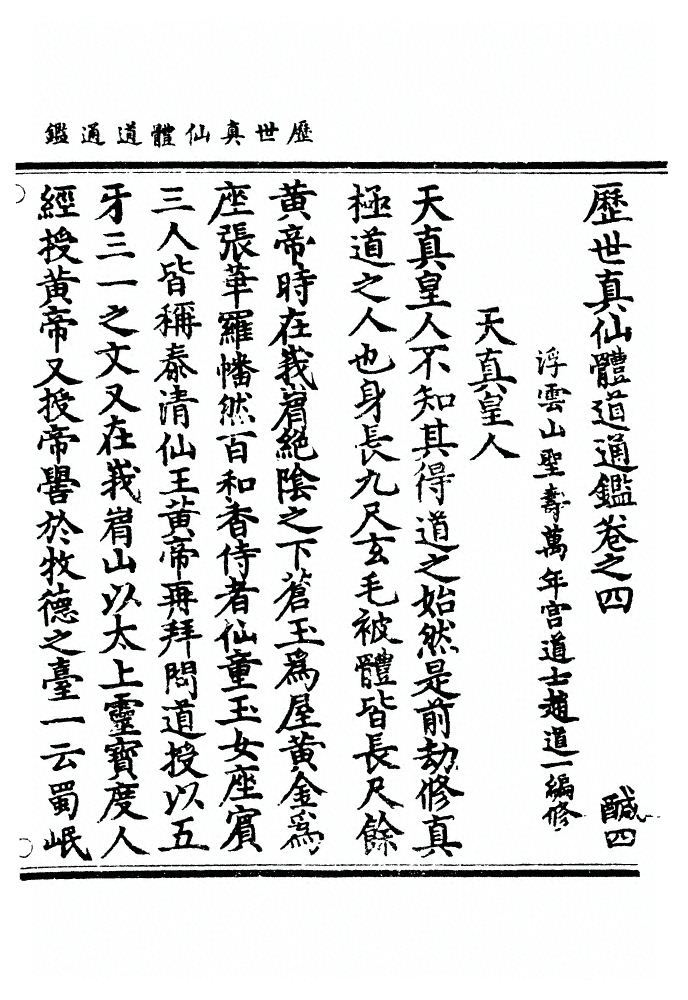 歷世真仙體道通鑑
歷世真仙體道通鑑卷之四
鹹四
浮雲山聖壽萬年宮道士趙道一編修
天真皇人
天真皇人不知其得道之始然是前劫修真
極道之人也身長九尺玄毛被體皆長尺餘
黃帝時在峩嵋絕陰之下蒼玉爲屋黃金爲
座張華羅幡然百和香侍者仙童玉女座賓
三人皆稱泰清仙王黃帝再拜問道授以五
牙三一之文又在峩嵋山以太上靈寶度人
經授黃帝又授帝嚳於牧德之臺一云蜀岷